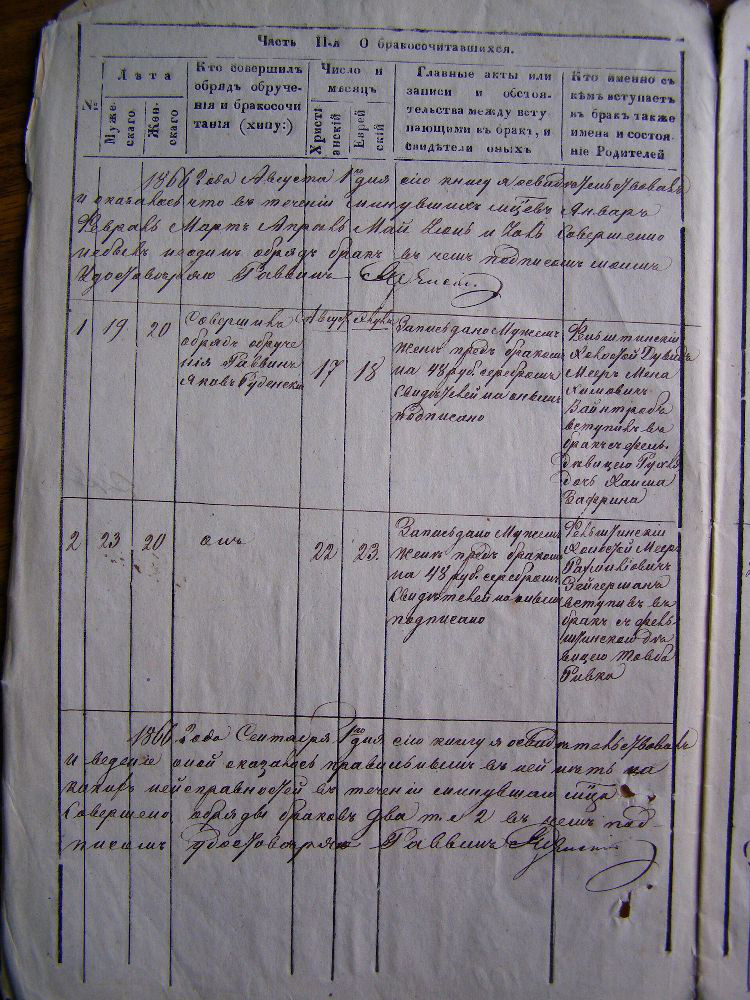 Часть II-я О бракосочитавшихся.
№
Лѣта
Муже-
скаго.
Жен-
скаго.
Кто совершилъ
обрядъ обруче-
нія и бракосочи
танія (хипу:)
Число и
мѣсяцъ
Христі
анскій
Еврей
скій
Главные акты или
записи и обстоя-
тельства между всту
пающими въ бракъ, и
свидѣтели оныхъ
Кто именно съ
кѣмъ вступаетъ
въ бракъ также
имена и состоя-
ніе Родителей
1866 Года Августа 1го дня сію книгу я освидѣтельствовалъ
и оказалось что въ теченіи минувшихъ мцевъ Январь
Февраль Мартъ Апрель Май Іюнь и Іюль совершено
небылъ обрядъ бракъ въ чемъ подписомъ моимъ
Удостовѣряю Раввинъ
1
19
20
Совершилъ
обрядъ обруче
нія Раввинъ
Яковъ
Август
17
18
Запись дано Мужемъ
женѣ предъ бракомъ
на 48 руб. серебромъ
Свидѣтелей на онымъ
подписано
Фельштинскій
Дувидъ
Мееръ
Хаимовичъ
Вайнтробъ
вступилъ въ
бракъ съ фель-
двицею Рухлъ
дочь Хаима
2
23
20
онъ
22
23
Запись дано Мужемъ
Женѣ предъ бракомъ
на 48 руб. серебромъ
Свидѣтелей на онымъ
подписано
Фельштинскій
Мееръ
Зейгерманъ
вступилъ въ
бракъ съ фель-
штинской дѣ
вицею Товба
Ривка
1866 Года Сентября 1го дня сію книгу я освидѣтельствовалъ
и веденіе оной оказалось правильнымъ въ ней нѣтъ ни
какихъ неисправностей въ теченіи минувшаго мца
Совершено обряды браковъ два т.е 2 въ чемъ под-
писомъ удостовѣряю Раввинъ